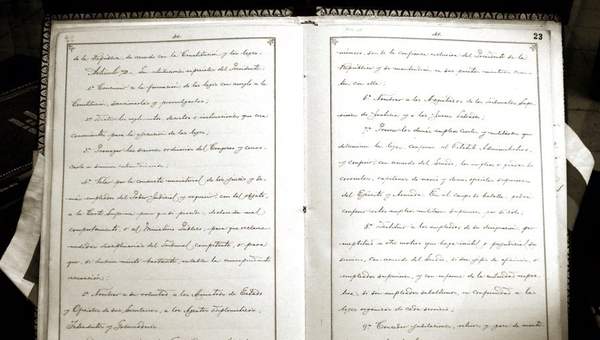 de la República, de acuerdo con la Constitución y las leyes.
Artículo 72. Son atribuciones especiales del Presidente:
1ª Concurrir a la formación de las leyes con arreglo a la
Constitución, sancionarlas y promulgarlas;
2ª Dictar los reglamentos, decretos e instrucciones que crea
convenientes para la ejecución de las leyes;
3ª Prorrogar las sesiones ordinarias del Congreso y convo-
carlo a sesiones extraordinarias;
4ª Velar por la conducta ministerial de los Jueces y de-
más empleados del Poder Judicial, y requerir, con tal objeto,
a la Corte Suprema para que, si procede, declare su mal
comportamiento, o al Ministerio Público, para que reclame
medidas disciplinarias del Tribunal competente, o para
que, si hubiere mérito bastante, entable la correspondiente
acusación;
5ª Nombrar a su voluntad a los Ministros de Estado
y Oficiales de sus Secretarías, a los Agentes Diplomáticos,
Intendentes y Gobernadores.
23
son de la confianza exclusiva del Presidente de la
República y se mantendrán en sus puestos mientras cuen-
ten con ella;
6ª Nombrar a los Magistrados de los Tribunales Supe-
riores de Justicia y a los Jueces Letrados;
7ª Proveer los demás empleos civiles y militares que
determinen las leyes, conforme al Estatuto Administrativo,
y conferir, con acuerdo del Senado, los empleos o grados de
coroneles, capitanes de navío y demás oficiales superiores
del Ejército y Armada. En el campo de batalla, podrá
conferir estos empleos militares superiores, por sí solo;
8ª Destituir a los empleados de su designación, por
ineptitud u otro motivo que haga inútil o perjudicial su
servicio, con acuerdo del Senado, si son jefes de oficinas, o
empleados superiores, y con informe de la autoridad respec-
tiva, si son empleados subalternos, en conformidad a las
leyes orgánicas de cada servicio;
9ª Conceder jubilaciones, retiros y goce de monte-